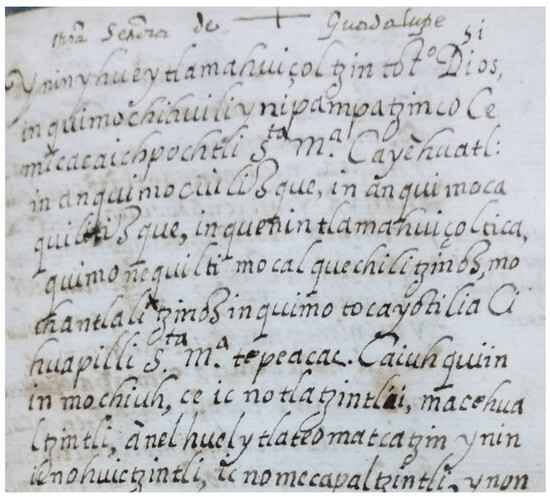 nrā Señora de + Guadalupe
Yninyhueytlamahuiçoltzin totº Dios,
inquimochihuili ynipampatzinco Ce
micacaichpochtli Sta Mª. Cayehuatl:
in anquimocuilizque, in anquimoca
quiltizque, inquenin tlamahuiçoltica,
quimo nequilti mocalquechilitzinos, mo
chantlalitzinos inquimotocayotilia Ci
huapilli Sta Mª. tepeacac. Caiuhquiin
in mochiuh, ce icnotlatzintli, macehua
ltzintli, ānel huelytlateomatcatzin ynin
icnohuictzintli, icnomecapaltzintli, ynon